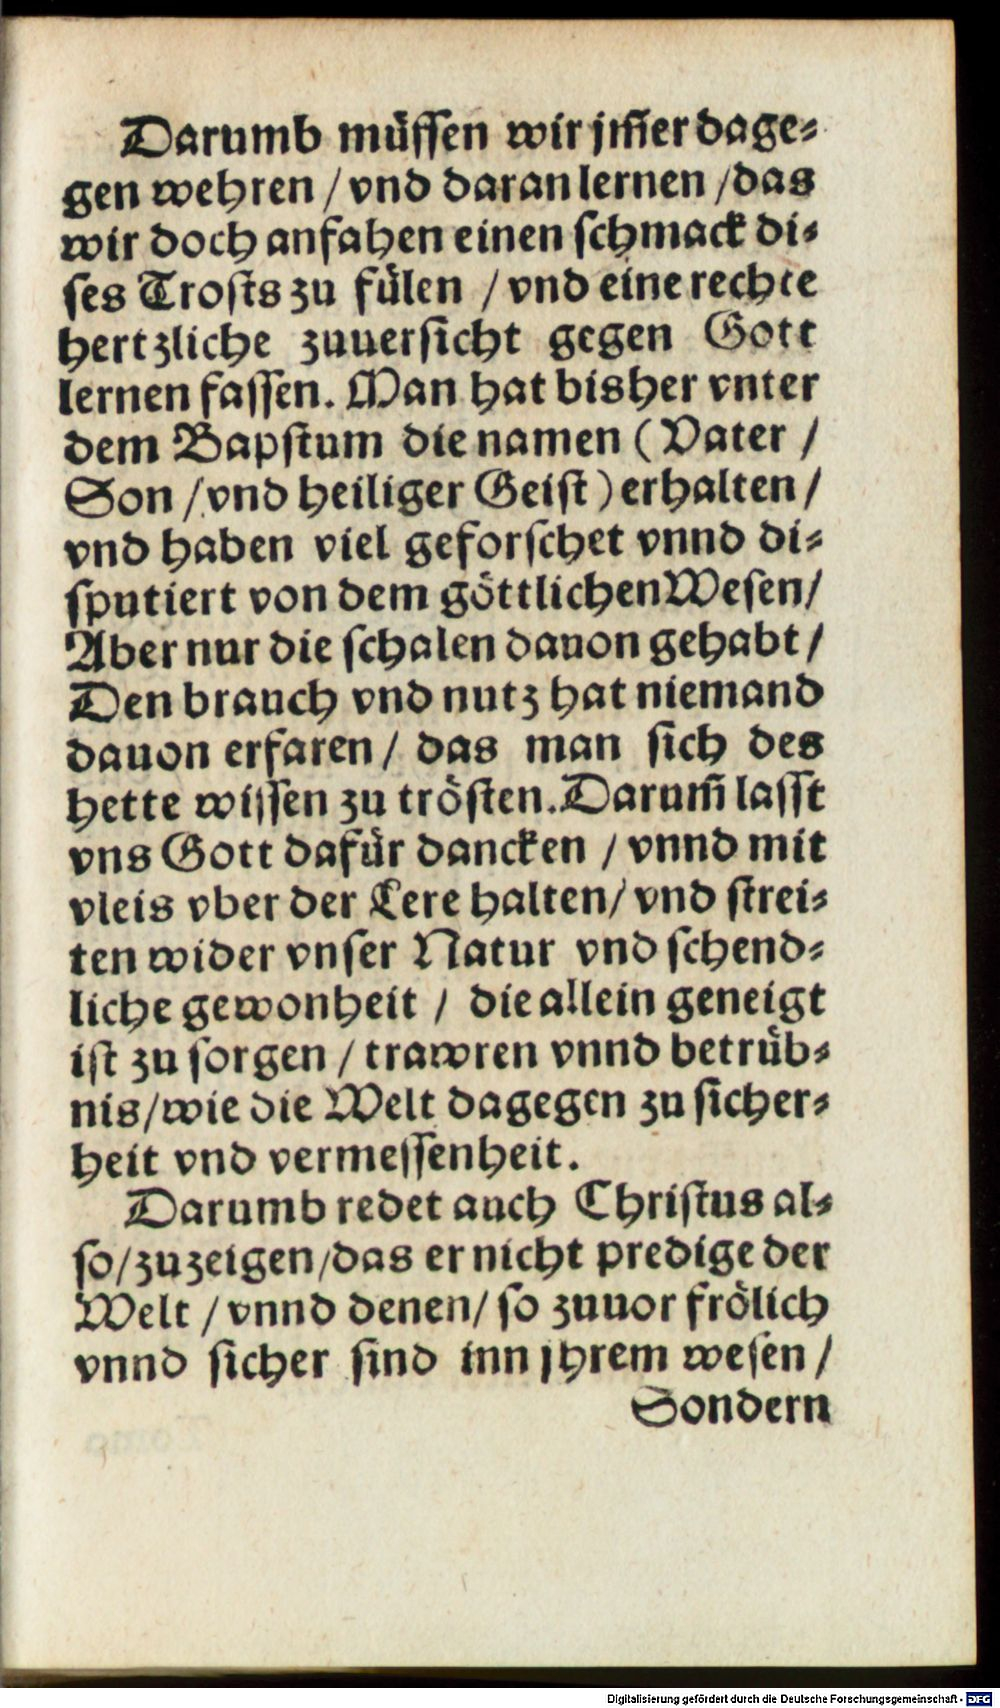 Darumb müssen wir jm̃er dage⸗
gen wehren / vnd daran lernen / das
wir doch anfahen einen schmack di⸗
ses Trosts zu fülen / vnd eine rechte
hertzliche zuuersicht gegen Gott
lernen fassen. Man hat bisher vnter
dem Bapstum die namen (Vater /
Son / vnd heiliger Geist) erhalten /
vnd haben viel geforschet vnnd di⸗
sputiert von dem göttlichen Wesen /
Aber nur die schalen dauon gehabt /
Den brauch vnd nutz hat niemand
dauon erfaren / das man sich des
hette wissen zu trösten. Darum̃ lasst
vns Gott dafür dancken / vnnd mit
vleis vber der Lere halten / vnd strei⸗
ten wider vnser Natur vnd schend⸗
liche gewonheit / die allein geneigt
ist zu sorgen / trawren vnnd betrüb⸗
nis / wie die Welt dagegen zu sicher⸗
heit vnd vermessenheit.
Darumb redet auch Christus al⸗
so / zuzeigen / das er nicht predige der
Welt / vnnd denen / so zuuor frölich
vnnd sicher sind inn jhrem wesen /
Sondern
Digitalisierung gefördert durch die Deutsche Forschungsgemeinschaft - DFG